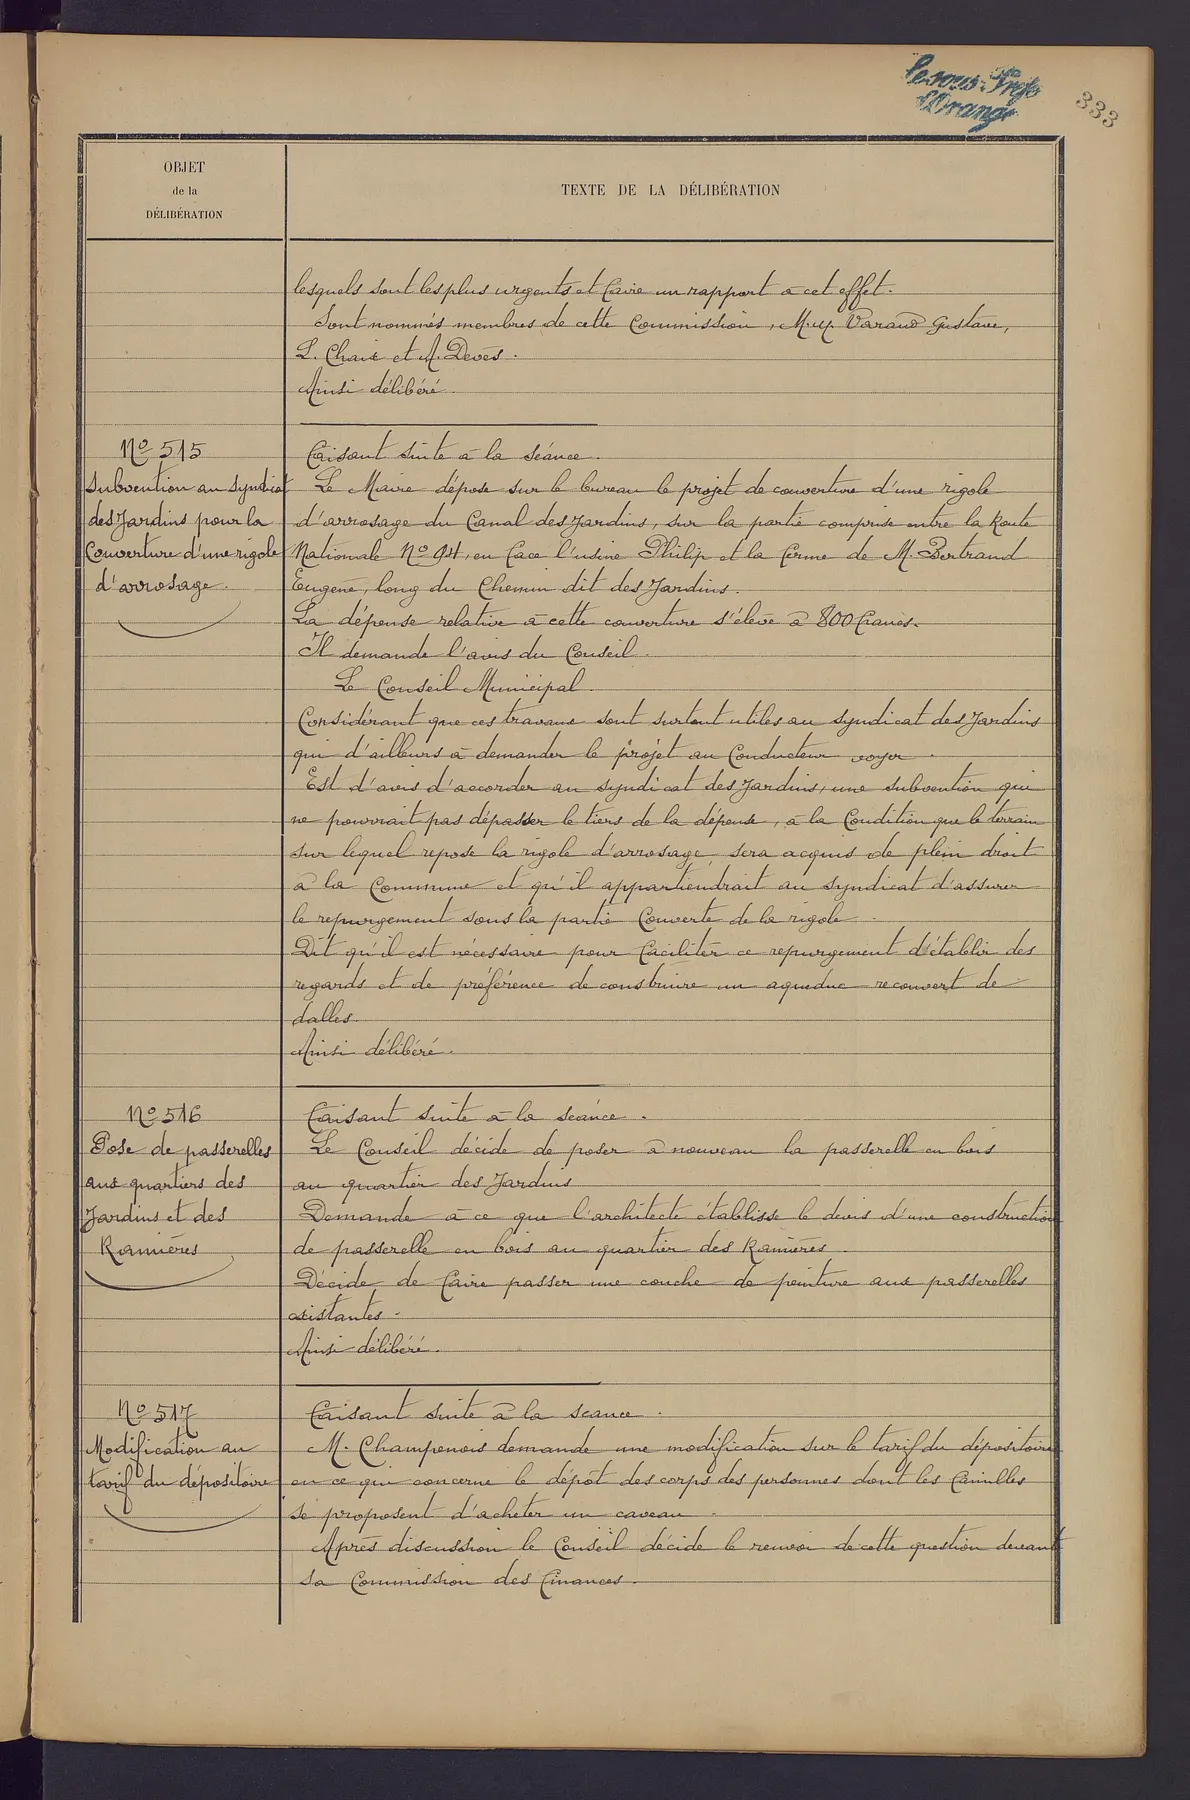 333
OBJET
de la
DÉLIBÉRATION
TEXTE DE LA DÉLIBÉRATION
lesquels sont les plus urgents et faire un rapport à cet effet.
Sont nommés membres de cette Commission, M.M. Varaud Gustave,
L. Chaix et A. Devès.
Ainsi délibéré.
No 515
Subvention au Syndicat
des Jardins pour la
Couverture d'une rigole
d'arrosage.
Faisant suite à la séance.
Le Maire dépose sur le bureau le projet de couverture d'une rigole
d'arrosage du Canal des Jardins, sur la partie comprise entre la Route
Nationale No 94, en face l'usine Philip et la ferme de M. Bertrand
Eugène, long du Chemin dit des Jardins.
La dépense relative à cette couverture s'élève à 800 francs.
Il demande l'avis du Conseil.
Le Conseil Municipal.
Considérant que ces travaux sont surtout utiles au Syndicat des Jardins
qui d'ailleurs à demander le projet au Conducteur voyer.
Est d'avis d'accorder au Syndicat des Jardins, une subvention qui
ne pourrait pas dépasser le tiers de la dépense, à la Condition que le terrain
sur lequel repose la rigole d'arrosage, sera acquis de plein droit
à la Commune et qu'il appartiendrait au Syndicat d'assurer
le repurgement sous la partie Couverte de la rigole.
Dit qu'il est nécessaire pour faciliter ce repurgement d'établir des
regards et de préférence de construire un aqueduc recouvert de
dalles.
Ainsi délibéré.
No 516
Pose de passerelles
aux quartiers des
Jardins et des
Ramières
Faisant suite à la séance.
Le Conseil décide de poser à nouveau la passerelle en bois
au quartier des Jardins
Demande à ce que l'architecte établisse le devis d'une construction
de passerelle en bois au quartier des Ramières.
Décide de faire passer une couche de peinture aux passerelles
existantes.
Ainsi délibéré.
No 517
Modification au
tarif du dépositoire
Faisant suite à la séance.
M. Champenois demande une modification sur le tarif du dépositoire
en ce qui concerne le dépôt des corps des personnes dont les familles
se proposent d'acheter un caveau.
Après discussion le Conseil décide le renvoi de cette question devant
sa Commission des Finances.